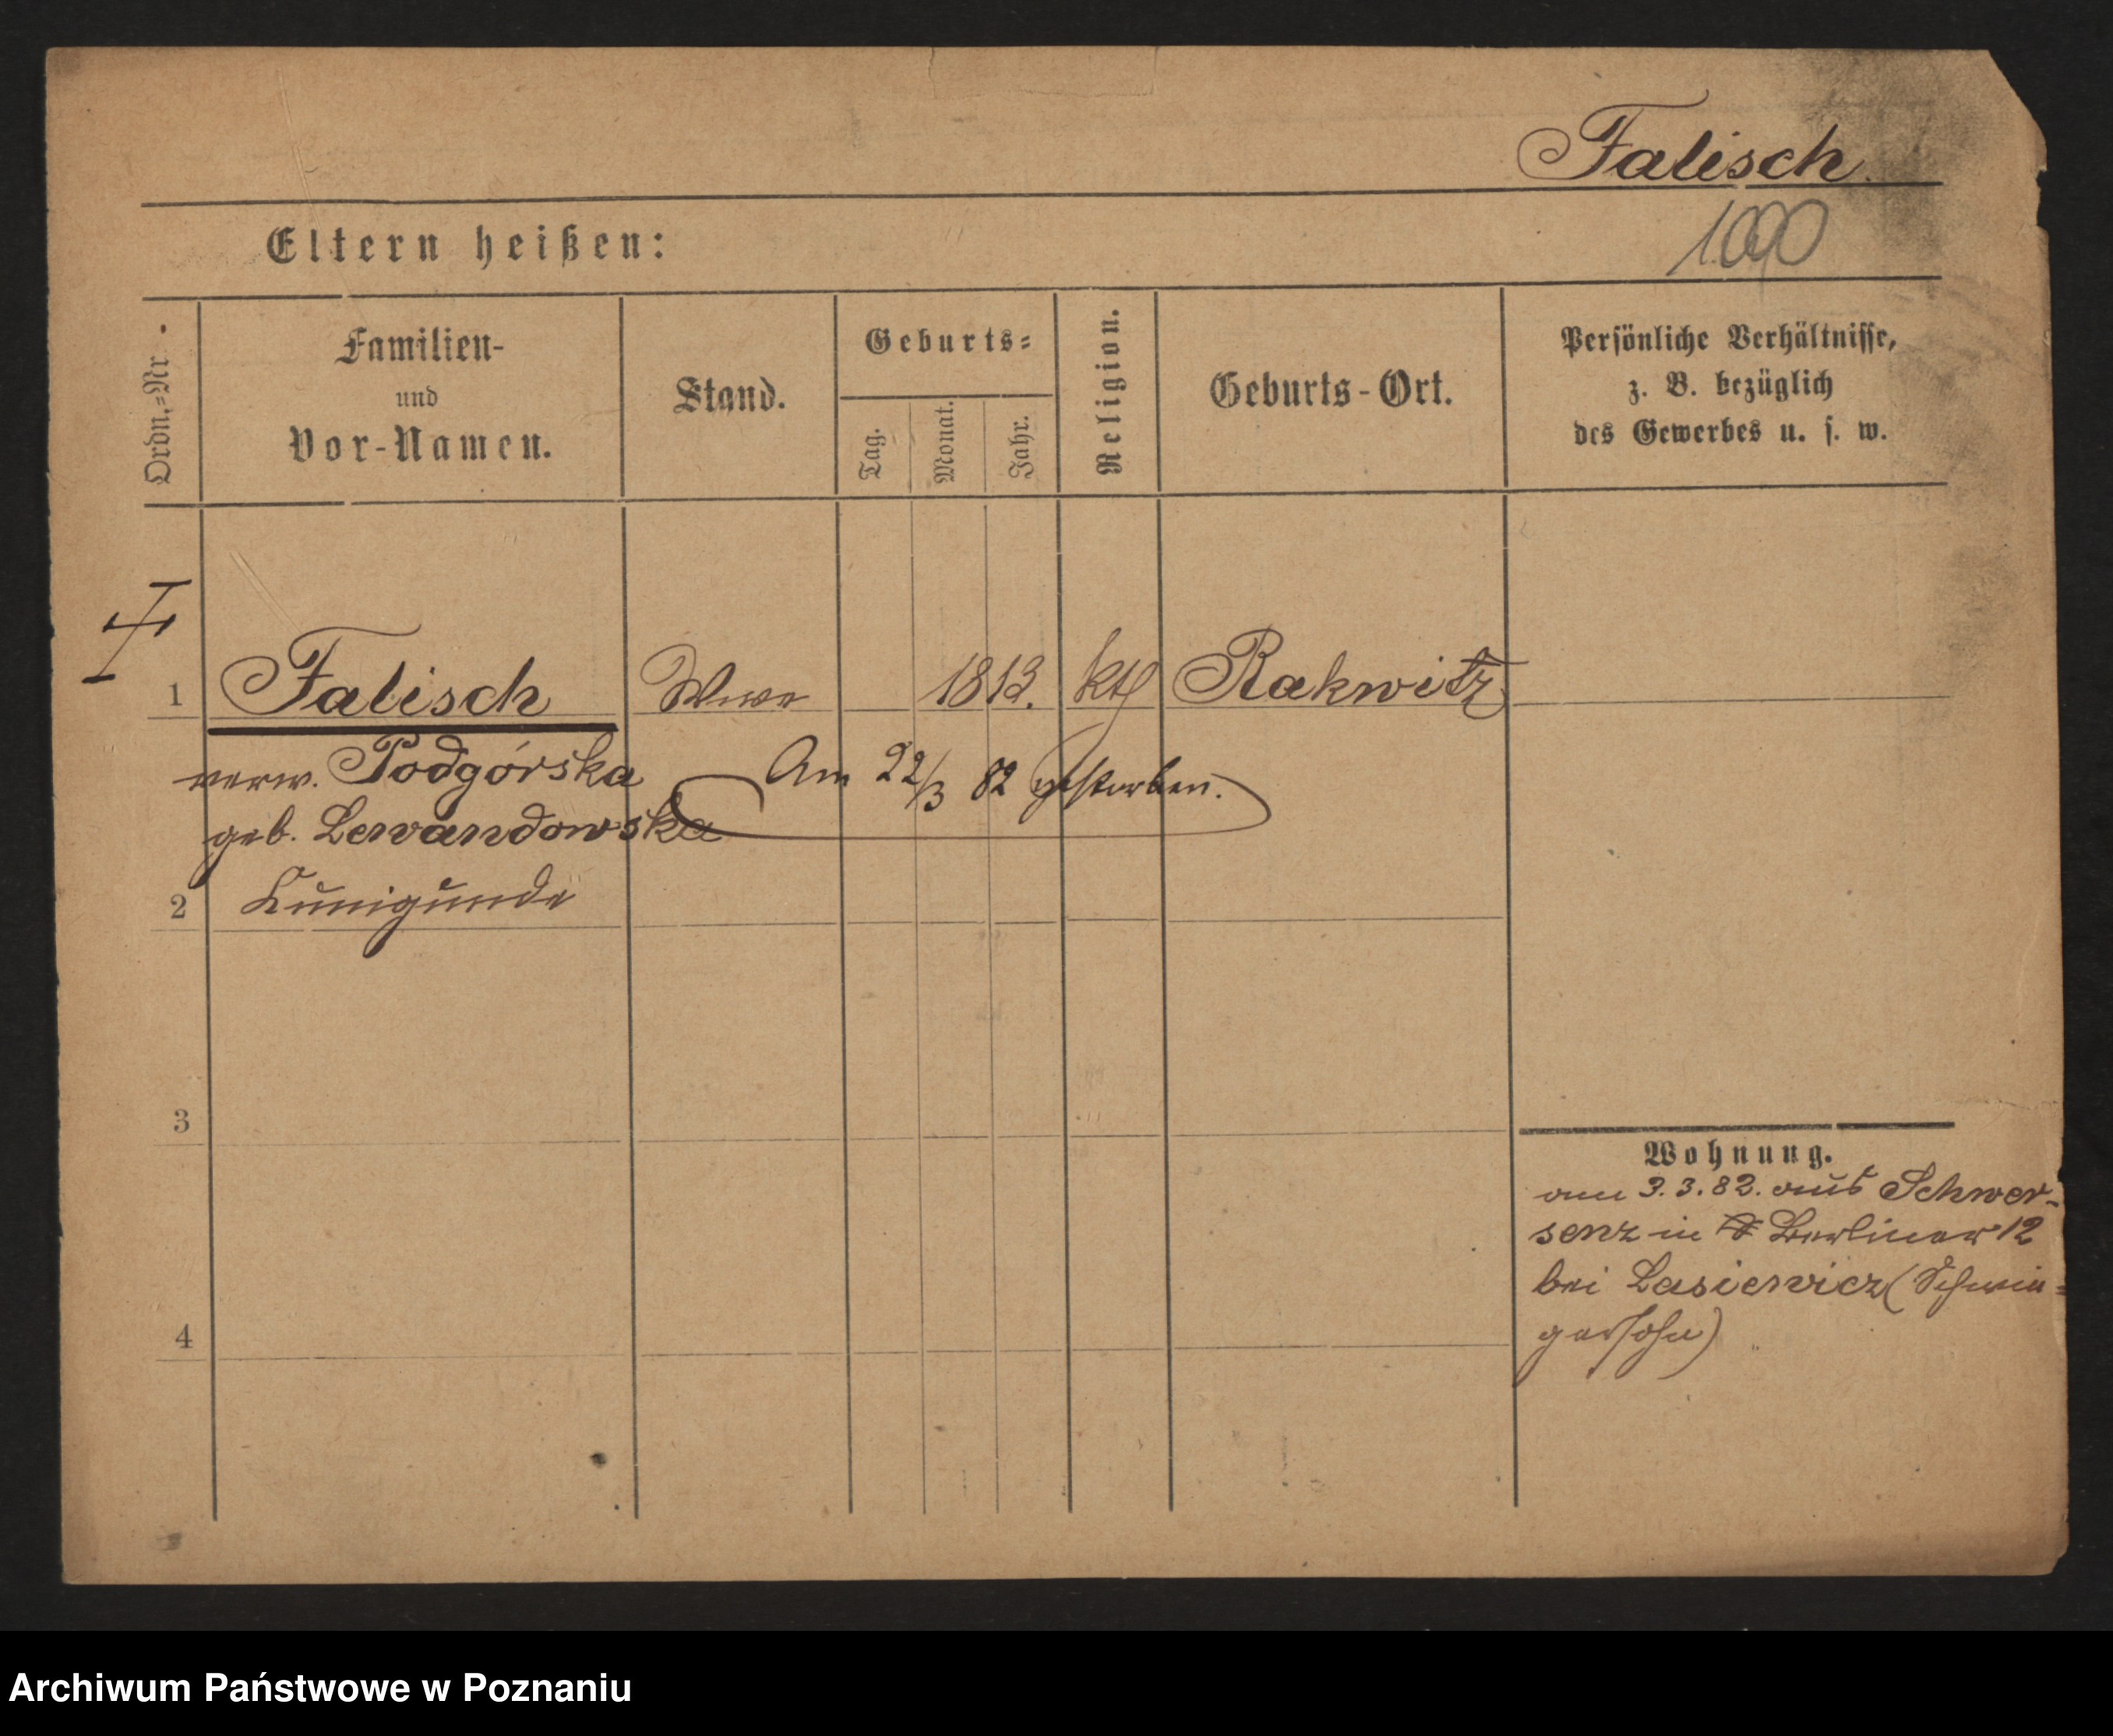 Falisch.
1090
Eltern heißen:
Ordn.-Nr.
Familien-
und
Vor-Namen.
Stand.
Geburts-
Tag.
Monat.
Jahr.
Religion.
Geburts-Ort.
Persönliche Verhältnisse,
z. B. bezüglich
des Gewerbes u. s. w.
1 Falisch Wwe 1813. kth Rakwitz
verw. Podgórska Am 22/3 82 gestorben.
geb. Lewandowska
2 Kunigunde
3
Wohnung.
am 3.3.82. aus Schwer-
senz in Berliner 12
bei Lasiewicz (Schwie-
gersohn)
4
Archiwum Państwowe w Poznaniu